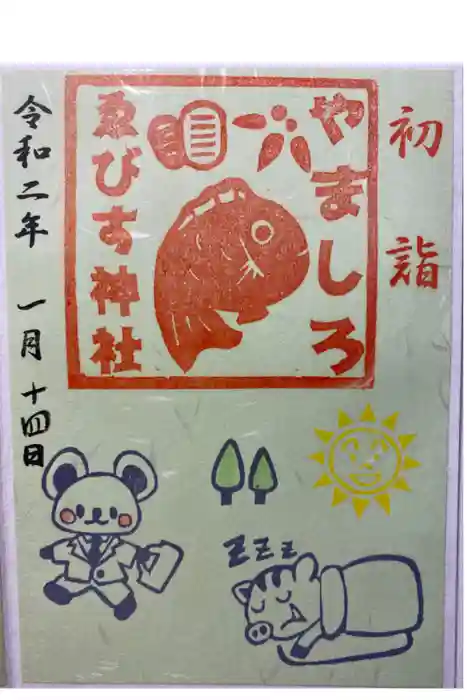 初詣
やましろ
ゑびす神社
令和二年 一月十四日
zzz